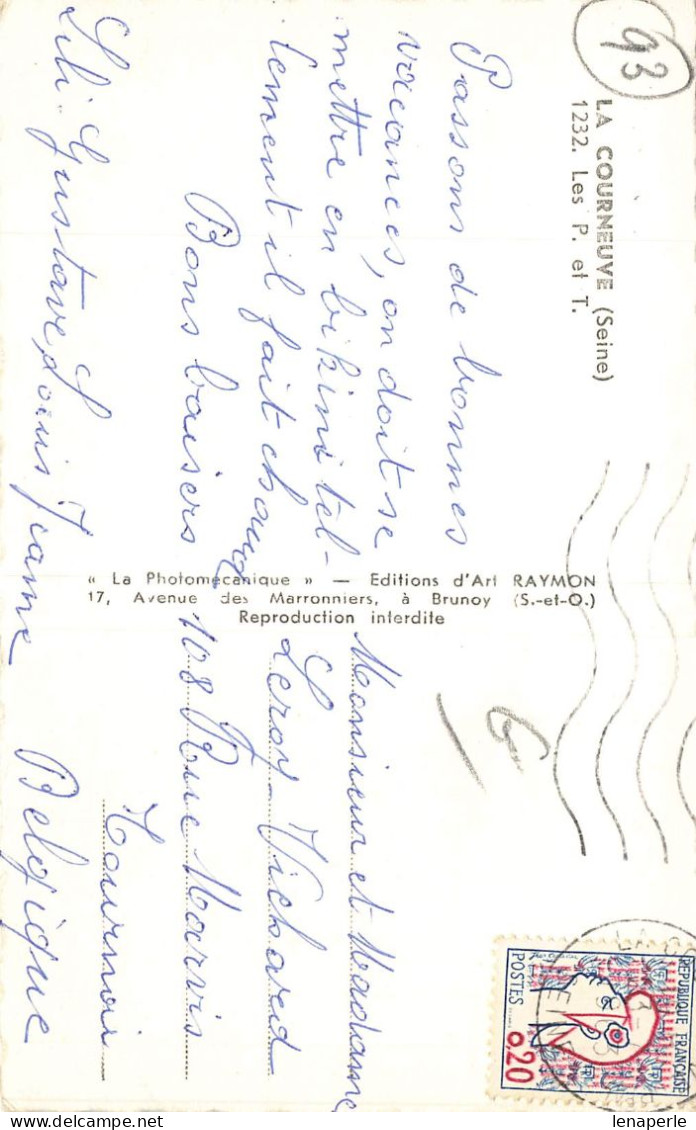 93
LA COURNEUVE (Seine)
1232. Les P. et T.
Passons de bonnes
vacances, on doit se
mettre en bikini tel-
lement il fait chaud
Bons baisers
Lili Gustave, Louis Jeanne
« La Photomécanique » — Editions d'Art RAYMON
17, Avenue des Marronniers, à Brunoy (S.-et-O.)
Reproduction interdite
Monsieur et Madame
Leroy Vichard
108 Rue Marvis
Tournai
Belgique
REPUBLIQUE FRANÇAISE
POSTES
0,20
lenaperle